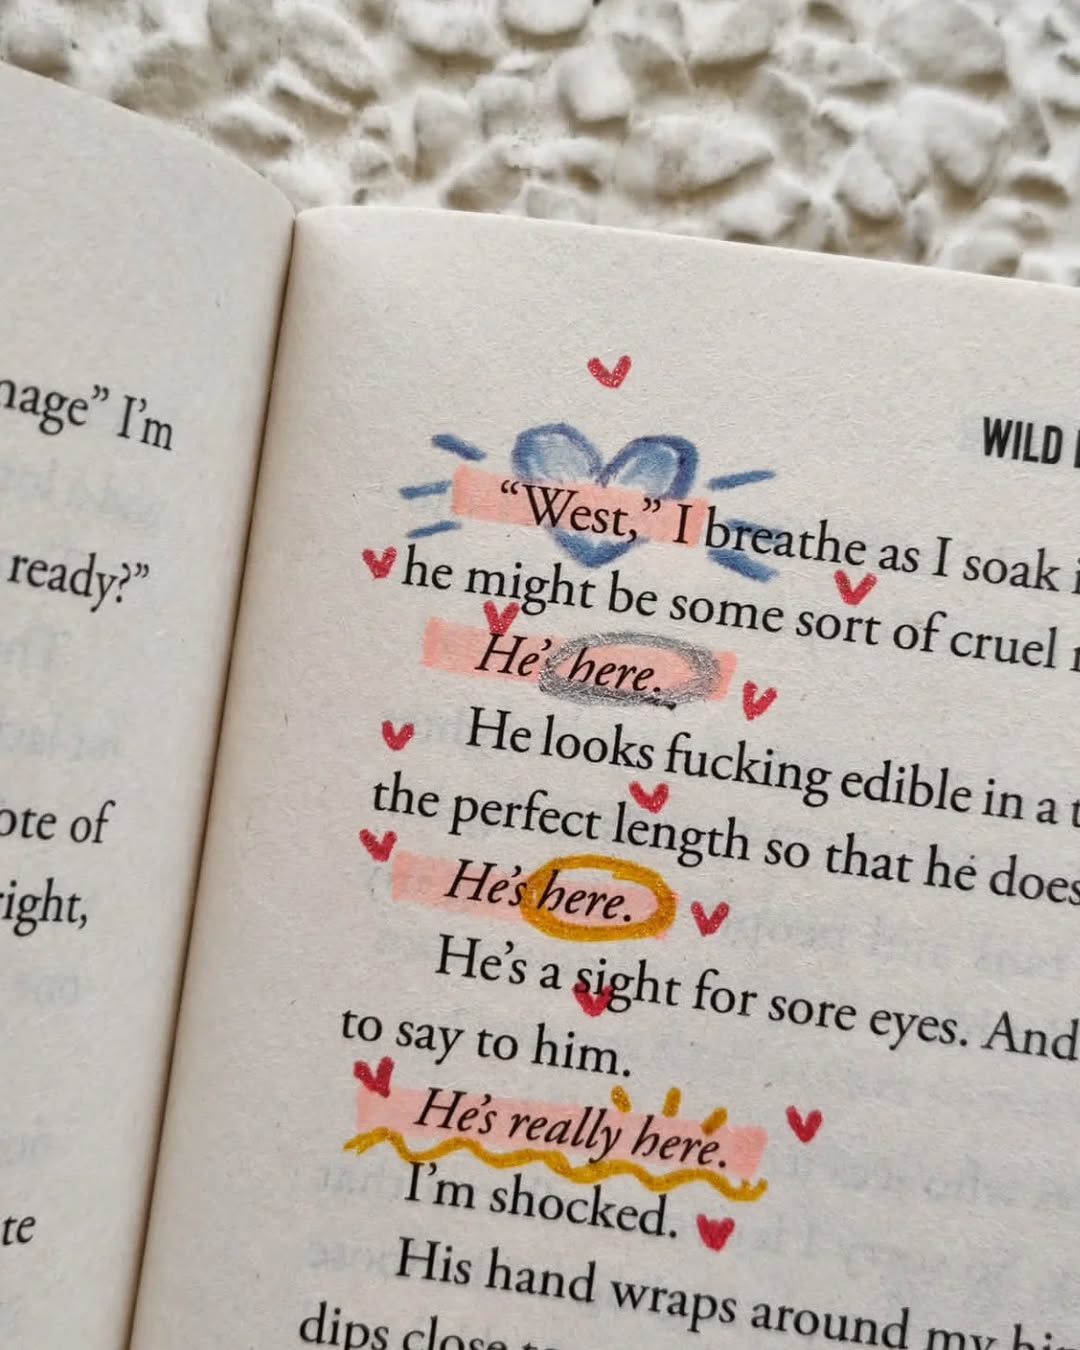 ”I’m
ready?”
of
WILD
“West,” I breathe as I soak
he might be some sort of cruel
He’s here.
He looks fucking edible in a
the perfect length so that he does
He’s here.
He’s a sight for sore eyes. And
to say to him.
He’s really here.
I’m shocked.
His hand wraps around my
dips close